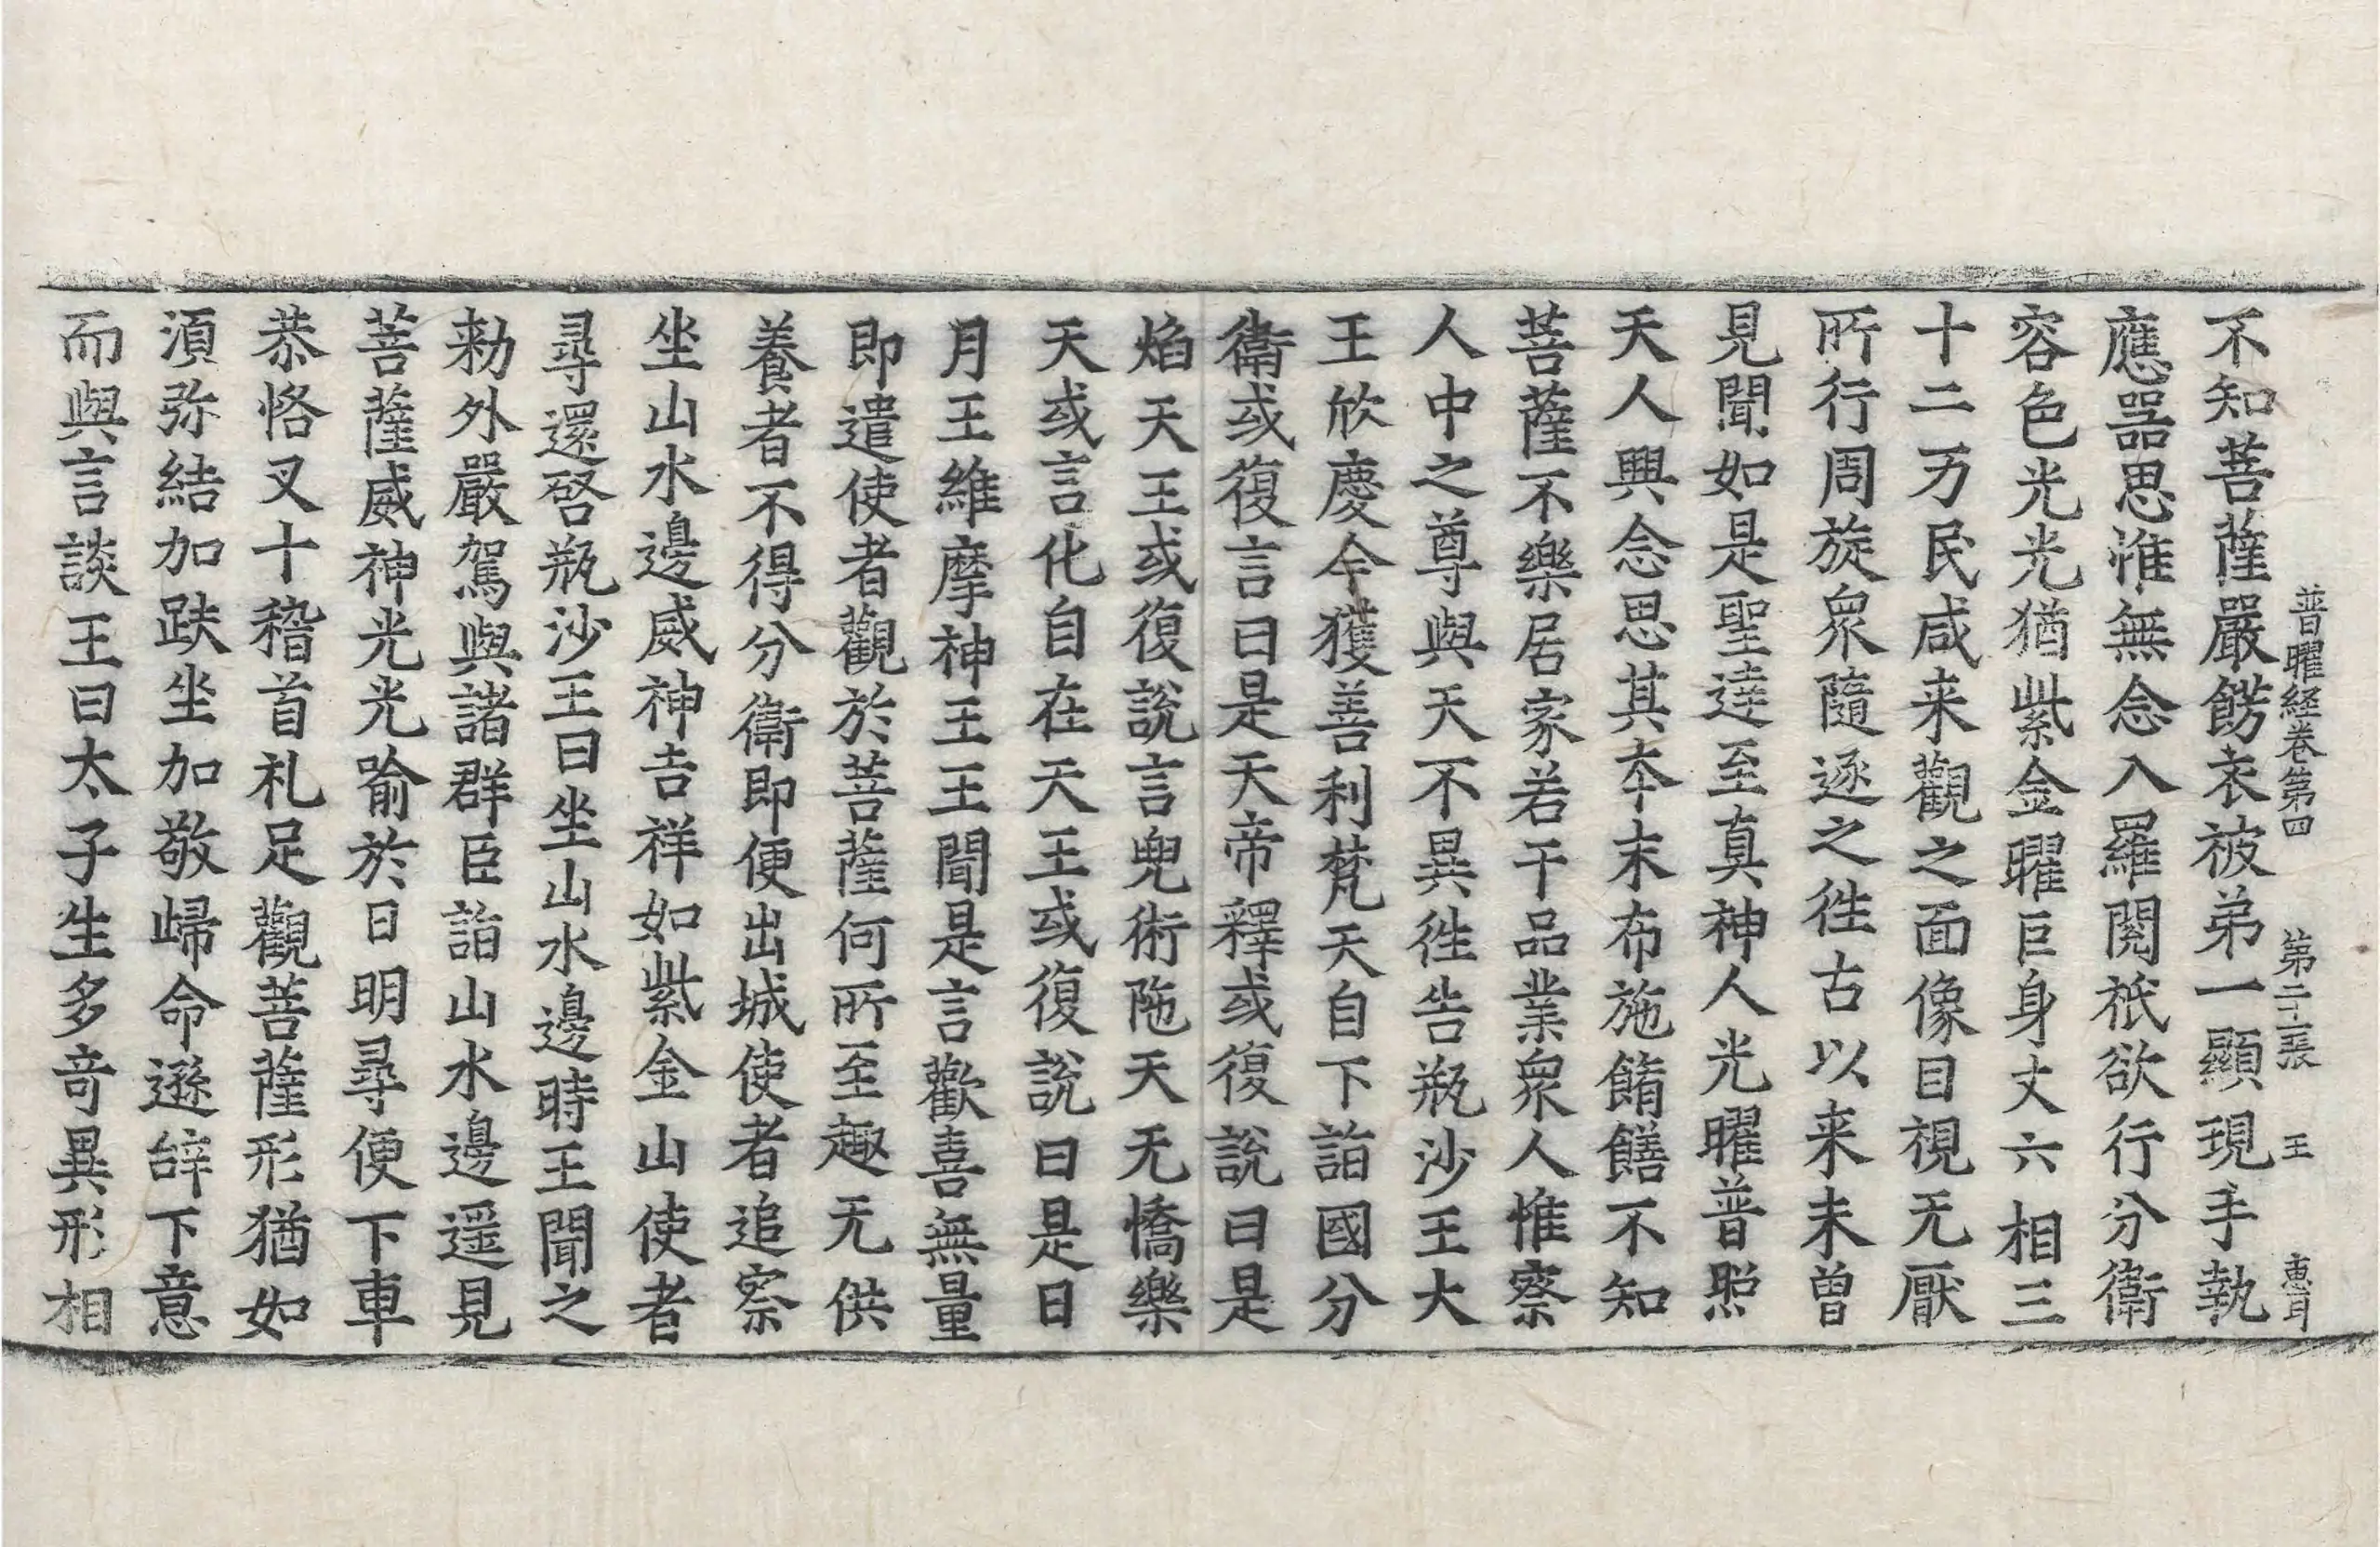 普曜経卷第四　第二十二張　王　惠耳
不知菩薩嚴餝衣被弟一顯現手執
應器思惟無念入羅閱祇欲行分衛
容色光光猶紫金曜巨身丈六相三
十二万民咸来觀之面像目視无厭
所行周旋衆隨逐之徃古以来未曾
見聞如是聖達至真神人光曜普照
天人興念思其夲末布施餚饍不知
菩薩不樂居家若干品業衆人惟察
人中之尊與天不異徃告瓶沙王大
王欣慶今獲善利梵天自下詣國分
衛或復言曰是天帝釋或復說曰是
焰天王或復說言兜術陁天无憍樂
天或言化自在天王或復說曰是日
月王維摩神王王聞是言歡喜無量
即遣使者觀於菩薩何所至趣无供
養者不得分衛即便出城使者追察
坐山水邊威神吉祥如紫金山使者
尋還啓瓶沙王曰坐山水邊時王聞之
勑外嚴駕與諸群臣詣山水邊遥見
菩薩威神光光喻於日明尋便下車
恭恪叉十稽首礼足觀菩薩形猶如
湏弥結加趺坐加敬歸命遜辞下意
而與言談王曰太子生多竒異形相